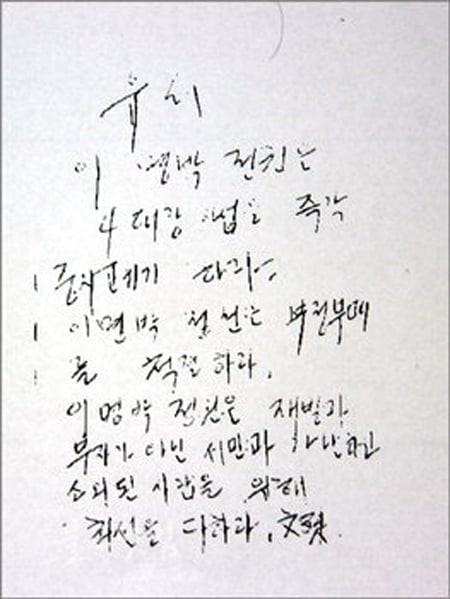 유서
이 명박 정권은
4대강 사업을 즉각
중지 폐기 하라.
이명박 정권은 부정부패
를 척결하라.
이명박 정권은 재벌과
부자가 아닌 서민과 가난하고
소외된 사람을 위해
최선을 다하라. 文殊.